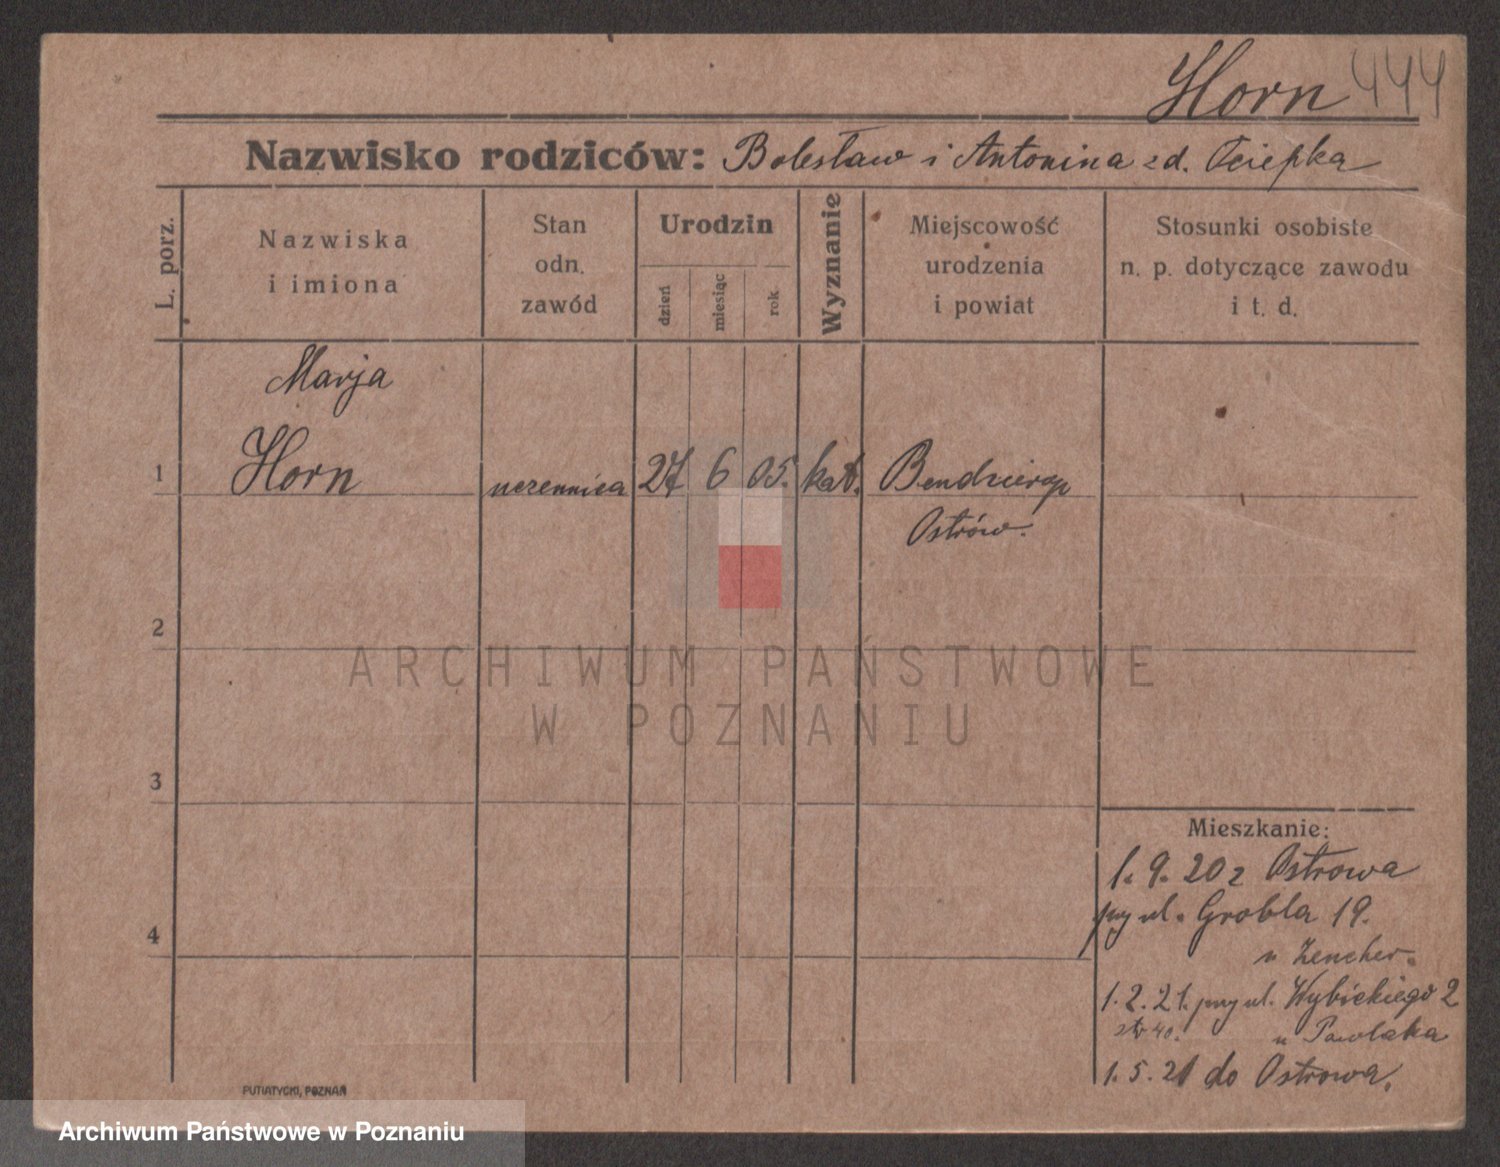 Horn 444
Nazwisko rodziców: Bolesław i Antonina zd. Ociepka
L. porz.
Nazwiska
i imiona
Stan
odn.
zawód
Urodzin
dzień
miesiąc
rok
Wyznanie
Miejscowość
urodzenia
i powiat
Stosunki osobiste
n. p. dotyczące zawodu
i t. d.
Marja
1 Horn uczennica 27 6 05. kat.
Ostrów.
2
ARCHIWUM PAŃSTWOWE
W POZNANIU
3
Mieszkanie:
1. 9. 20 z Ostrowa
przy ul. Grobla 19.
4
u Zencher.
1. 2. 21. przy ul. Wybickiego 2
str 40. u Pawlaka
1. 5. 21 do Ostrowa.
PUTIATYCKI, POZNAŃ
Archiwum Państwowe w Poznaniu